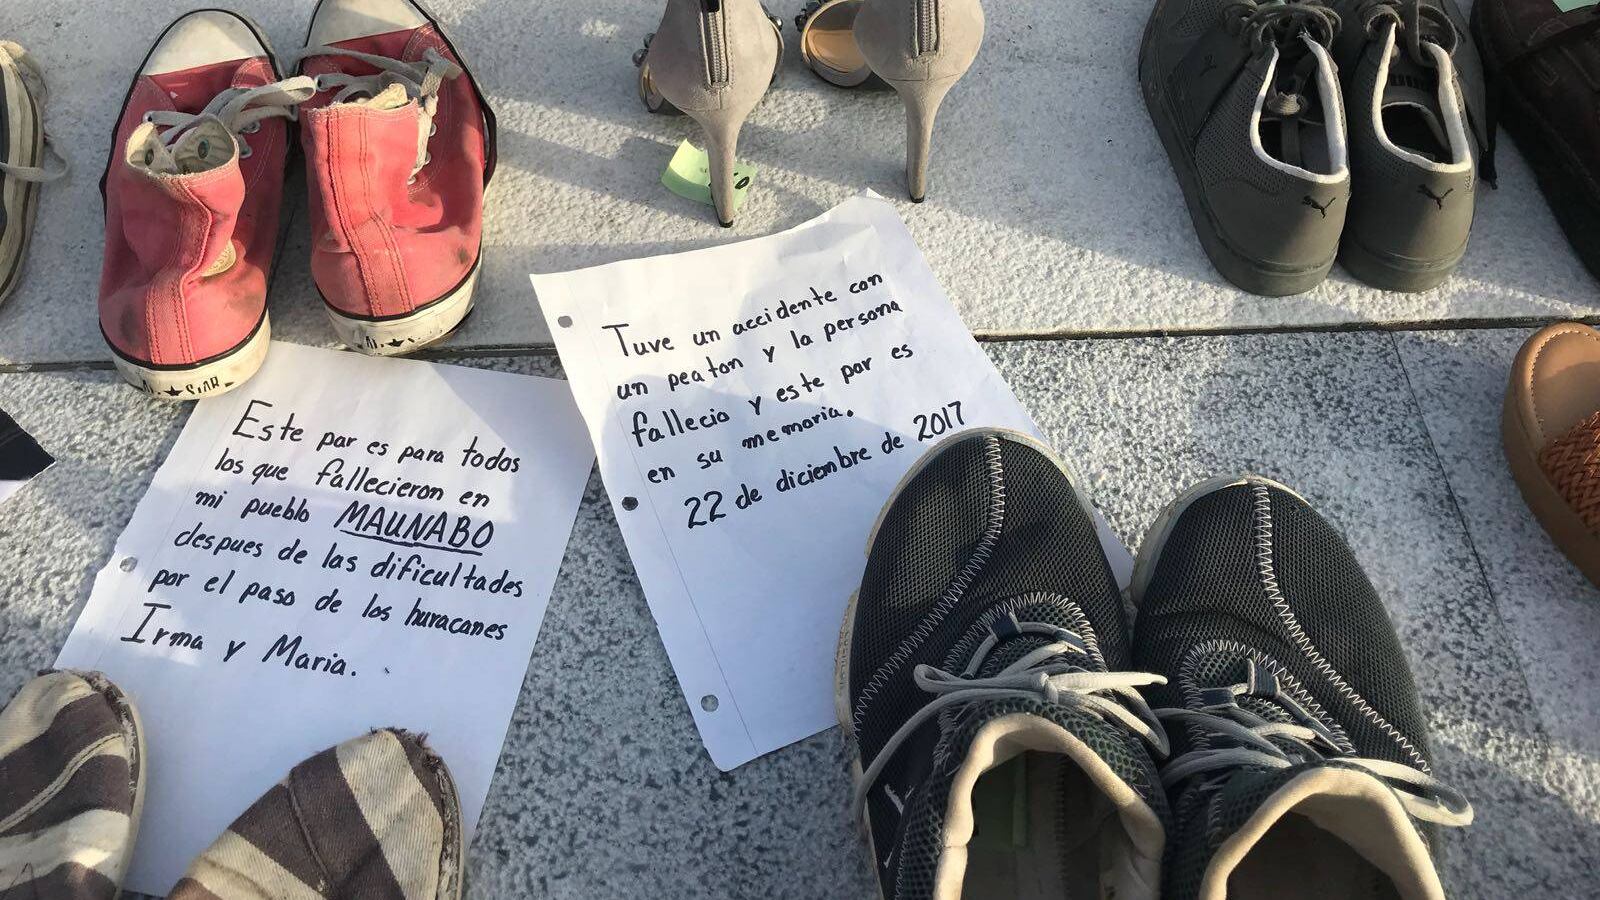 Este par es para todos
los que fallecieron en
mi pueblo MAUNABO
despues de las dificultades
por el paso de los huracanes
Irma y Maria.
Tuve un accidente con
un peaton y la persona
fallecio y este par es
en su memoria.
22 de diciembre de 2017